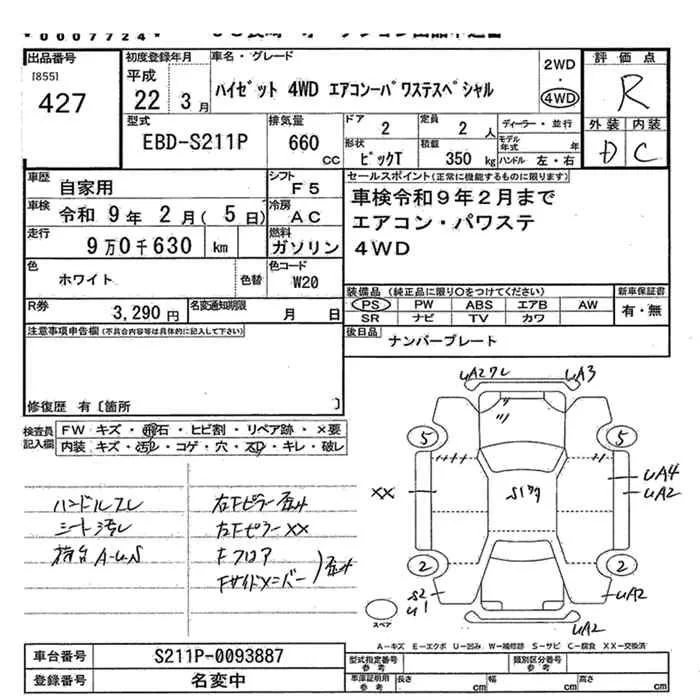 *0007724*
出品番号
[855]
427
初度登録年月
平成
22 3月
車名・グレード
ハイゼット 4WD エアコンーパワステスペシャル
2WD
・
4WD
評価点
R
外装 内装
D C
型式
EBD-S211P
排気量
660
CC
ドア
2
定員
2 人
形状
ピックT
積載
350 kg
ディーラー・並行
モデル年式 年
ハンドル 左・右
車歴
自家用
シフト
F5
車検
令和 9年 2月( 5日)
冷房
AC
走行
9万0千630 km
燃料
ガソリン
色
ホワイト
色替
色コード
W20
R券
3,290円
名変通知期限
月 日
セールスポイント(正常に機能するものに限ります)
車検令和9年2月まで
エアコン・パワステ
4WD
装備品(純正品に限り○をつけてください)
PS PW ABS エアB AW
SR ナビ TV カワ
新車保証書
有・無
後日品
ナンバープレート
注意事項申告欄(不具合内容等は具体的に記入して下さい)
修復歴 有〔箇所 〕
検査員記入欄
FW キズ・飛石・ヒビ割・リペア跡・×要
内装 キズ・汚レ・コゲ・穴・スレ・キレ・破レ
ハンドルスレ
シート汚レ
荷台 A-U-S
右Fピラー歪み
右Fピラー××
Fフロア
Fサイドメンバー
歪み
UA2ワレ
UA3
5
5
××
UA4
UA2
2
2
S2
U1
UA2
UA2
スペア
A-キズ E-エクボ U-凹み W-補修跡 S-サビ C-腐食 XX-交換済
車台番号
S211P-0093887
登録番号
名変中
型式指定番号
参考
類別区分番号
参考
車庫証明用
参考
長さ cm
幅 cm
高さ cm